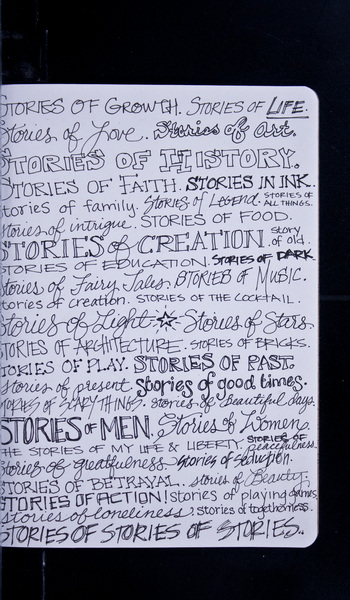 STORIES OF GROWTH. STORIES OF LIFE.
Stories of Love. Stories of Art.
STORIES OF HISTORY.
STORIES OF FAITH. STORIES IN INK.
stories of family. Stories of Legend. STORIES OF ALL THINGS.
stories of intrigue. STORIES OF FOOD.
STORIES of CREATION. story of old.
STORIES OF EDUCATION. STORIES OF DARK.
Stories of Fairy Tales. STORIES OF MUSIC.
stories of creation. STORIES OF THE COCKTAIL.
Stories of Light ☆ Stories of Stars.
STORIES OF ARCHITECTURE. STORIES OF BRICKS.
STORIES OF PLAY. STORIES OF PAST.
stories of present. stories of good times.
STORIES OF SCARY THINGS. stories of beautiful days.
STORIES OF MEN. Stories of Women.
THE STORIES OF MY LIFE & LIBERTY. STORIES OF peacefulness.
stories of greatfulness. stories of seduction.
STORIES OF BETRAYAL. stories of Beauty.
STORIES OF ACTION! stories of playing games.
stories of loneliness. stories of togetherness.
STORIES OF STORIES OF STORIES.